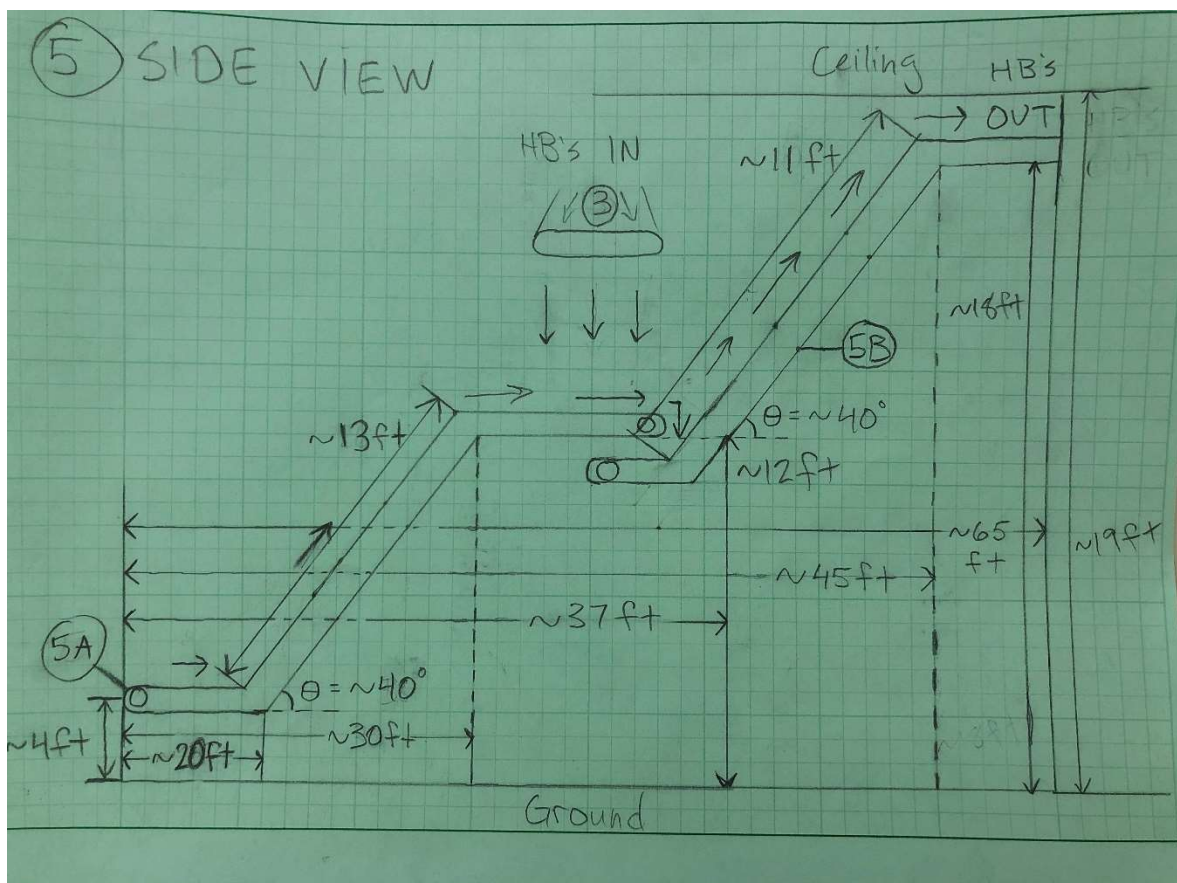 5 SIDE VIEW
Ceiling
HB's
OUT
HB's IN
3
~11ft
~18ft
5B
~13ft
θ = ~40°
~12ft
~65
ft
~19ft
~45ft
~37ft
5A
θ = ~40°
~30ft
~4ft
~20ft
Ground